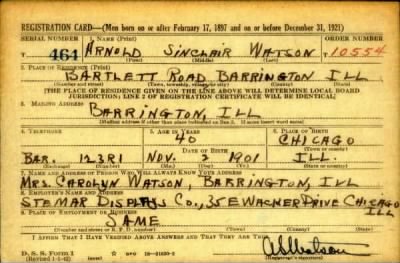 REGISTRATION CARD—(Men born on or after February 17, 1897 and on or before December 31, 1921)
SERIAL NUMBER 1. NAME (Print) ORDER NUMBER
464 ARNOLD SINCLAIR WATSON 10554
(First) (Middle) (Last)
2. PLACE OF RESIDENCE (Print)
BARTLETT ROAD BARRINGTON ILL
(Number and street) (Town, township, village, or city) (County) (State)
[THE PLACE OF RESIDENCE GIVEN ON THE LINE ABOVE WILL DETERMINE LOCAL BOARD
JURISDICTION; LINE 2 OF REGISTRATION CERTIFICATE WILL BE IDENTICAL]
3. MAILING ADDRESS
BARRINGTON, ILL
[Mailing address if other than place indicated on line 2. If same insert word same]
4. TELEPHONE 5. AGE IN YEARS 6. PLACE OF BIRTH
40 CHICAGO
DATE OF BIRTH (Town or county)
BAR. 123R1 NOV. 2 1901 ILL.
(Exchange) (Number) (Mo.) (Day) (Yr.) (State or country)
7. NAME AND ADDRESS OF PERSON WHO WILL ALWAYS KNOW YOUR ADDRESS
MRS. CAROLYN WATSON, BARRINGTON, ILL
8. EMPLOYER'S NAME AND ADDRESS
STEMAR DISPLAYS CO., 35 E WACKER DRIVE CHICAGO
ILL
9. PLACE OF EMPLOYMENT OR BUSINESS
SAME
(Number and street or R. F. D. number) (Town) (County) (State)
I AFFIRM THAT I HAVE VERIFIED ABOVE ANSWERS AND THAT THEY ARE TRUE.
D. S. S. FORM 1
(Revised 1-5-42)